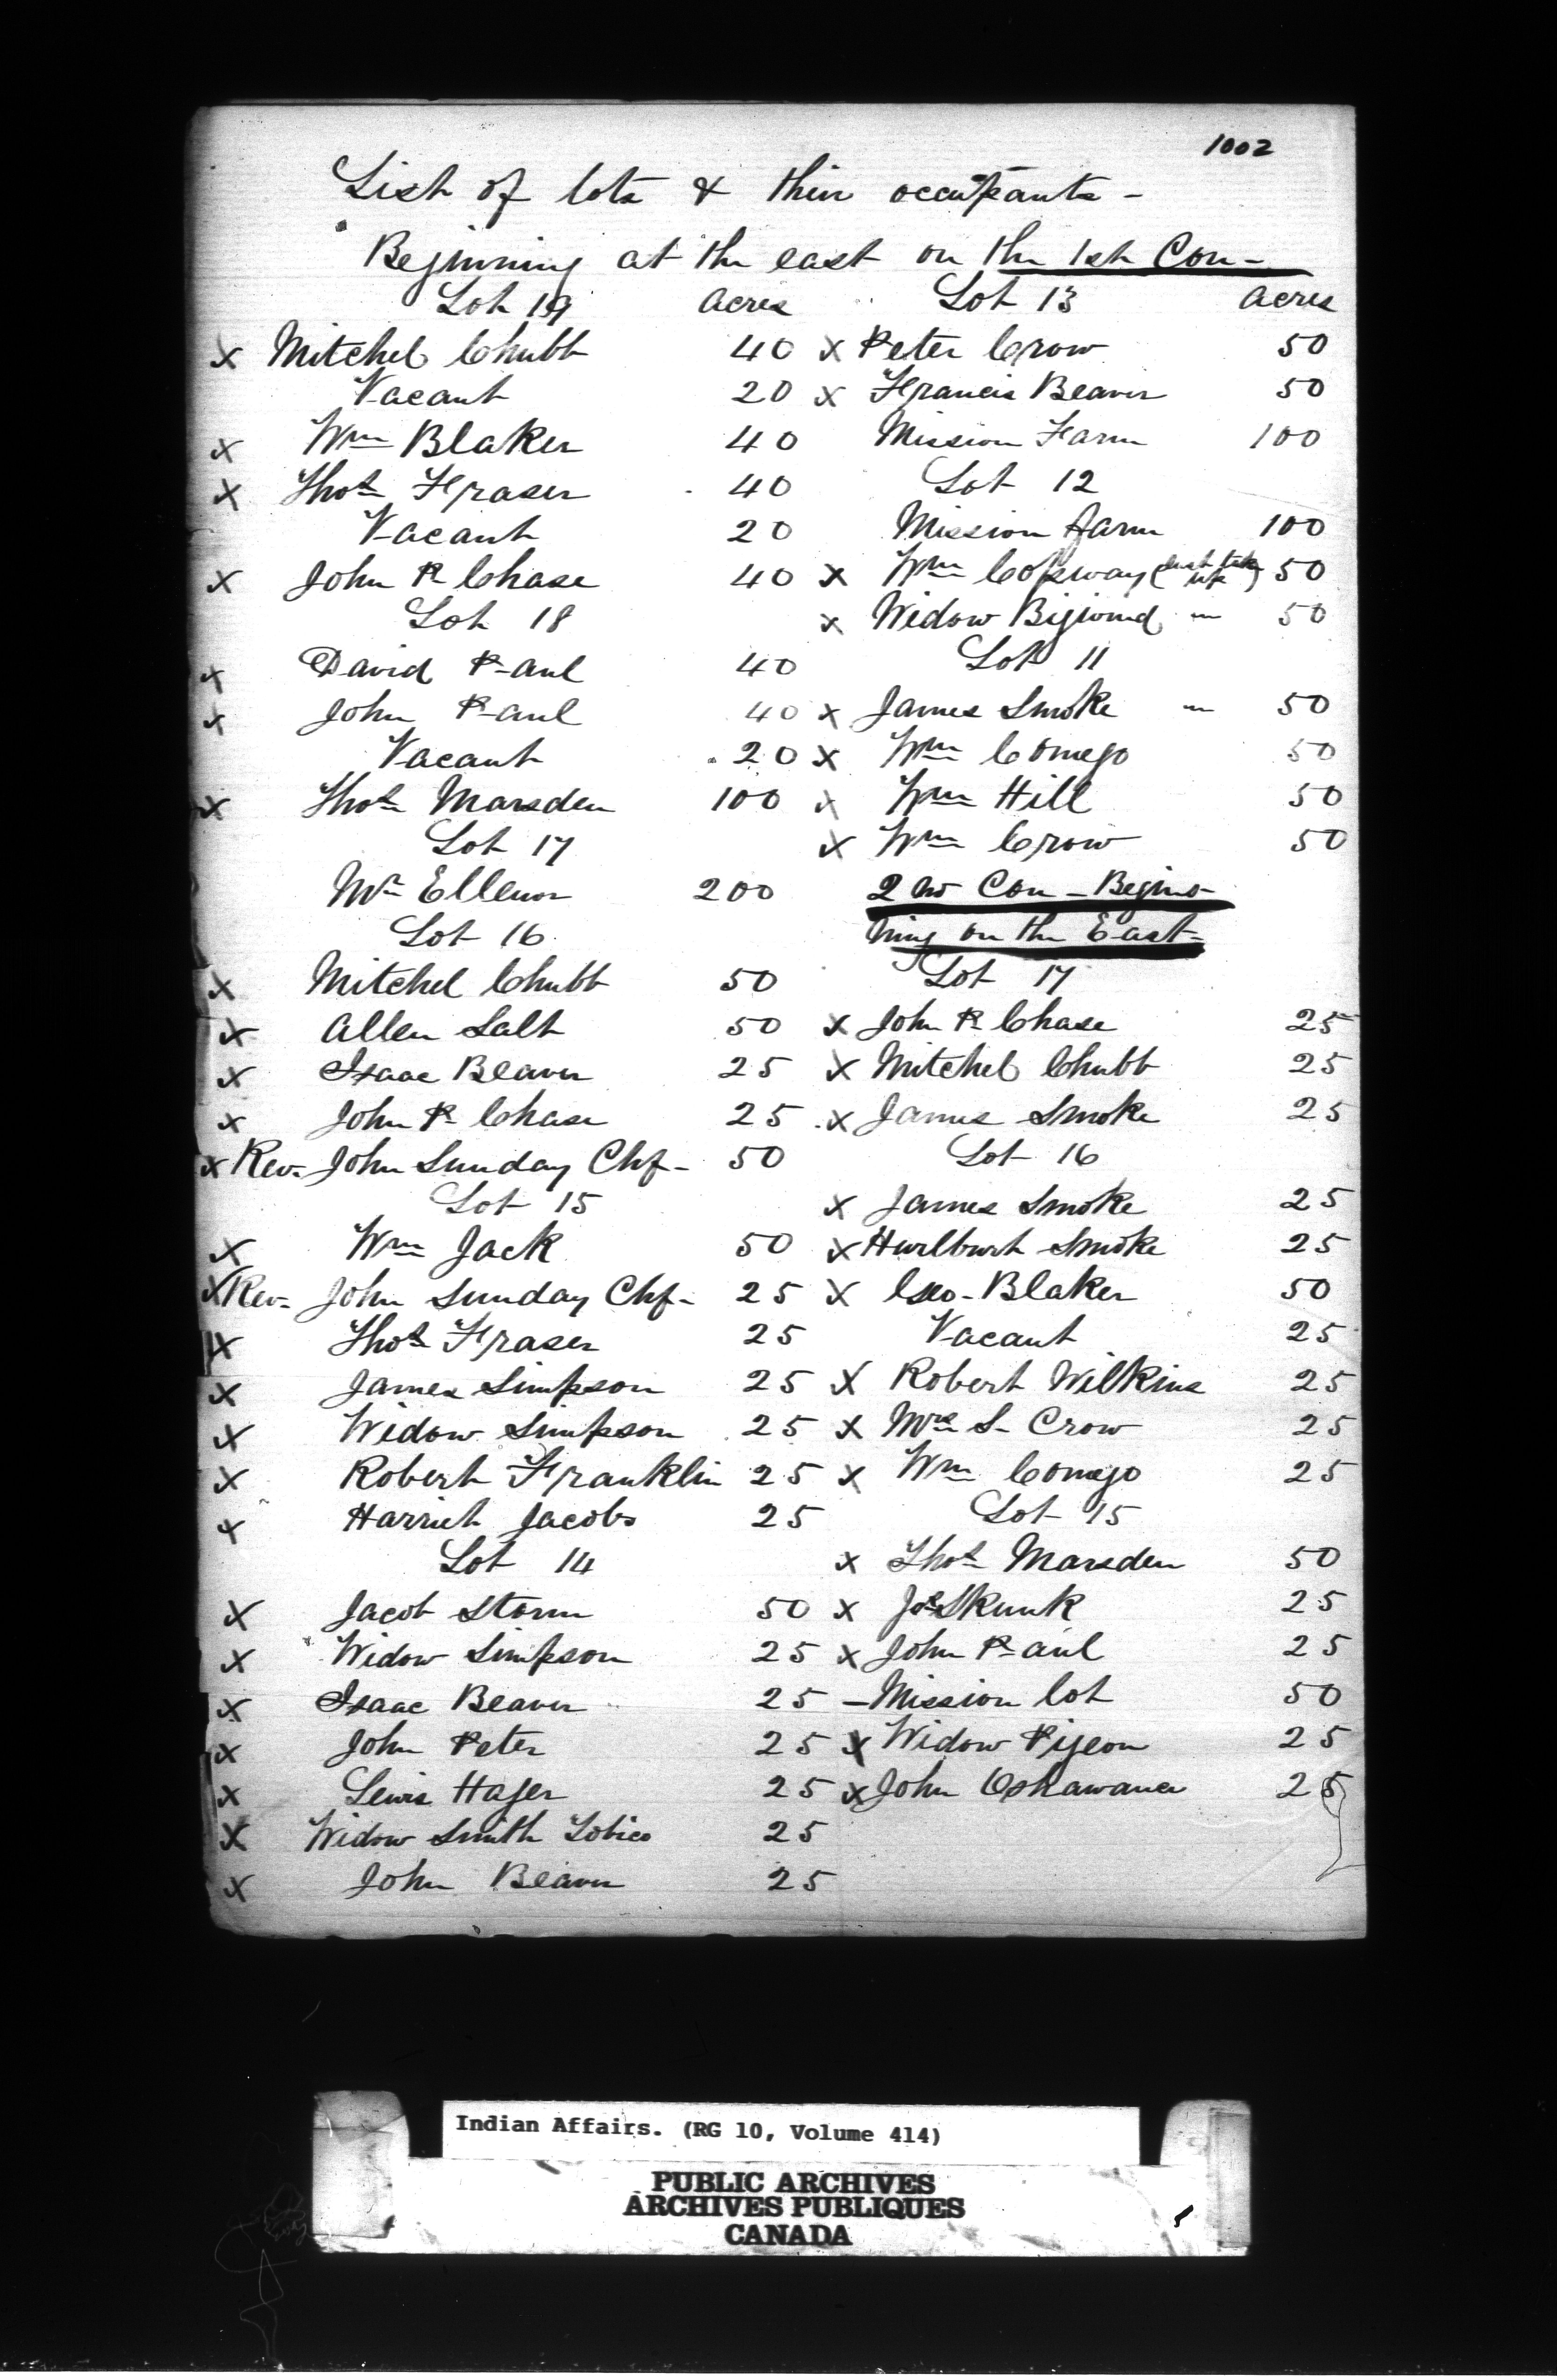 1002
List of lots & their occupants -
Beginning at the east on the 1st Con -
Lot 19 acres
x Mitchel Chubb 40
Vacant 20
x Wm Blaker 40
x Thos Fraser 40
Vacant 20
x John P. Chase 40
Lot 18
x David Paul 40
x John Paul 40
Vacant 20
x Thos Marsden 100
Lot 17
Mr Ellenor 200
Lot 16
x Mitchel Chubb 50
x Allen Salt 50
x Isaac Beaver 25
x John P. Chase 25
x Rev. John Sunday Chf - 50
Lot 15
x Wm Jack 50
x Rev. John Sunday Chf - 25
x Thos Fraser 25
x James Simpson 25
x Widow Simpson 25
x Robert Franklin 25
x Harriet Jacobs 25
Lot 14
x Jacob Storm 50
x Widow Simpson 25
x Isaac Beaver 25
x John Peter 25
x Lewis Hager 25
x Widow Smith Tobico 25
x John Beaver 25
Lot 13 acres
x Peter Crow 50
x Francis Beaver 50
Mission Farm 100
Lot 12
Mission farm 100
x Wm Copway ( up ) 50
x Widow Bigwind - 50
Lot 11
x James Smoke - 50
x Wm Comego 50
x Wm Hill 50
x Wm Crow 50
2nd Con - Begin-
ning on the East -
Lot 17
x John P. Chase 25
x Mitchel Chubb 25
x James Smoke 25
Lot 16
x James Smoke 25
x Hurlburt Smoke 25
x Geo. Blaker 50
Vacant 25
x Robert Wilkins 25
x Mrs S. Crow 25
x Wm Comego 25
Lot 15
x Thos Marsden 50
x Jos Skunk 25
x John Paul 25
- Mission lot 50
x Widow Pigeon 25
x John Oshawana 25
Indian Affairs. (RG 10, Volume 414)
PUBLIC ARCHIVES
ARCHIVES PUBLIQUES
CANADA